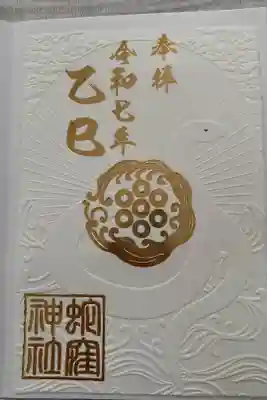 奉拝
令和七年
乙巳
蛇窪
神社